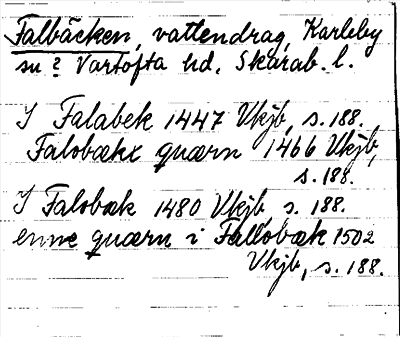 Falbäcken, vattendrag, Karleby
sn? Vartofta hd. Skarab. l.
I Falabek 1447 Vkjb, s. 188.
Falobækx quærn 1466 Vkjb,
s. 188.
I Falobæk 1480 Vkjb, s. 188.
enne quærn i Fallobæk 1502
Vkjb, s. 188.